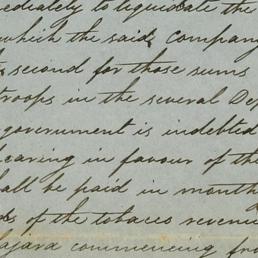 ediately to liquidate the
which the said company
second for those sums
troops in the several De
government is indebted
earing in favour of the
all be paid in month
of the tobacco revenu
ajara commencing fro